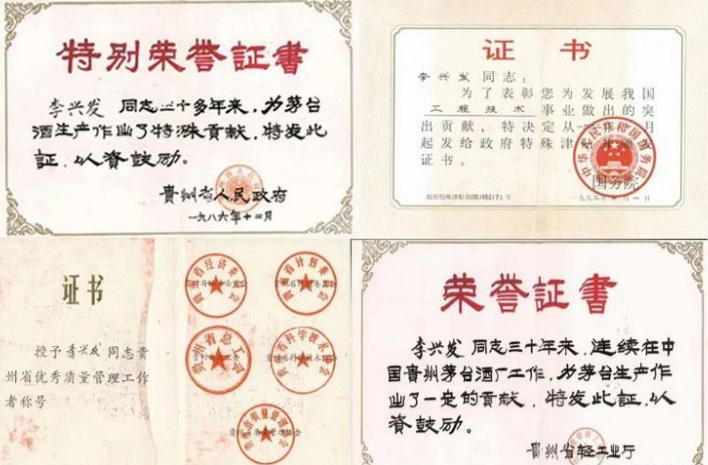 特别荣誉証書
李兴发 同志三十多年来，为茅台
酒生产作出了特殊贡献，特发此
証，以资鼓励。
贵州省人民政府
一九八六年十一月
证 书
李兴发同志：
为了表彰您为发展我国
工程技术 事业做出的突
出贡献，特决定从一九
月
起发给政府特殊津
证书。
中华人民共和国国务院
国务院
授予李兴发同志贵
州省优秀质量管理工作
者称号
证书
贵州省经济委员会
贵州省计划委员会
贵州省总工会
贵州省科学技术
荣誉証書
李兴发 同志三十年来，连续在中
国贵州茅台酒厂工作，为茅台生产作
出了一定的贡献，特发此証，以
资鼓励。
贵州省轻工业厅